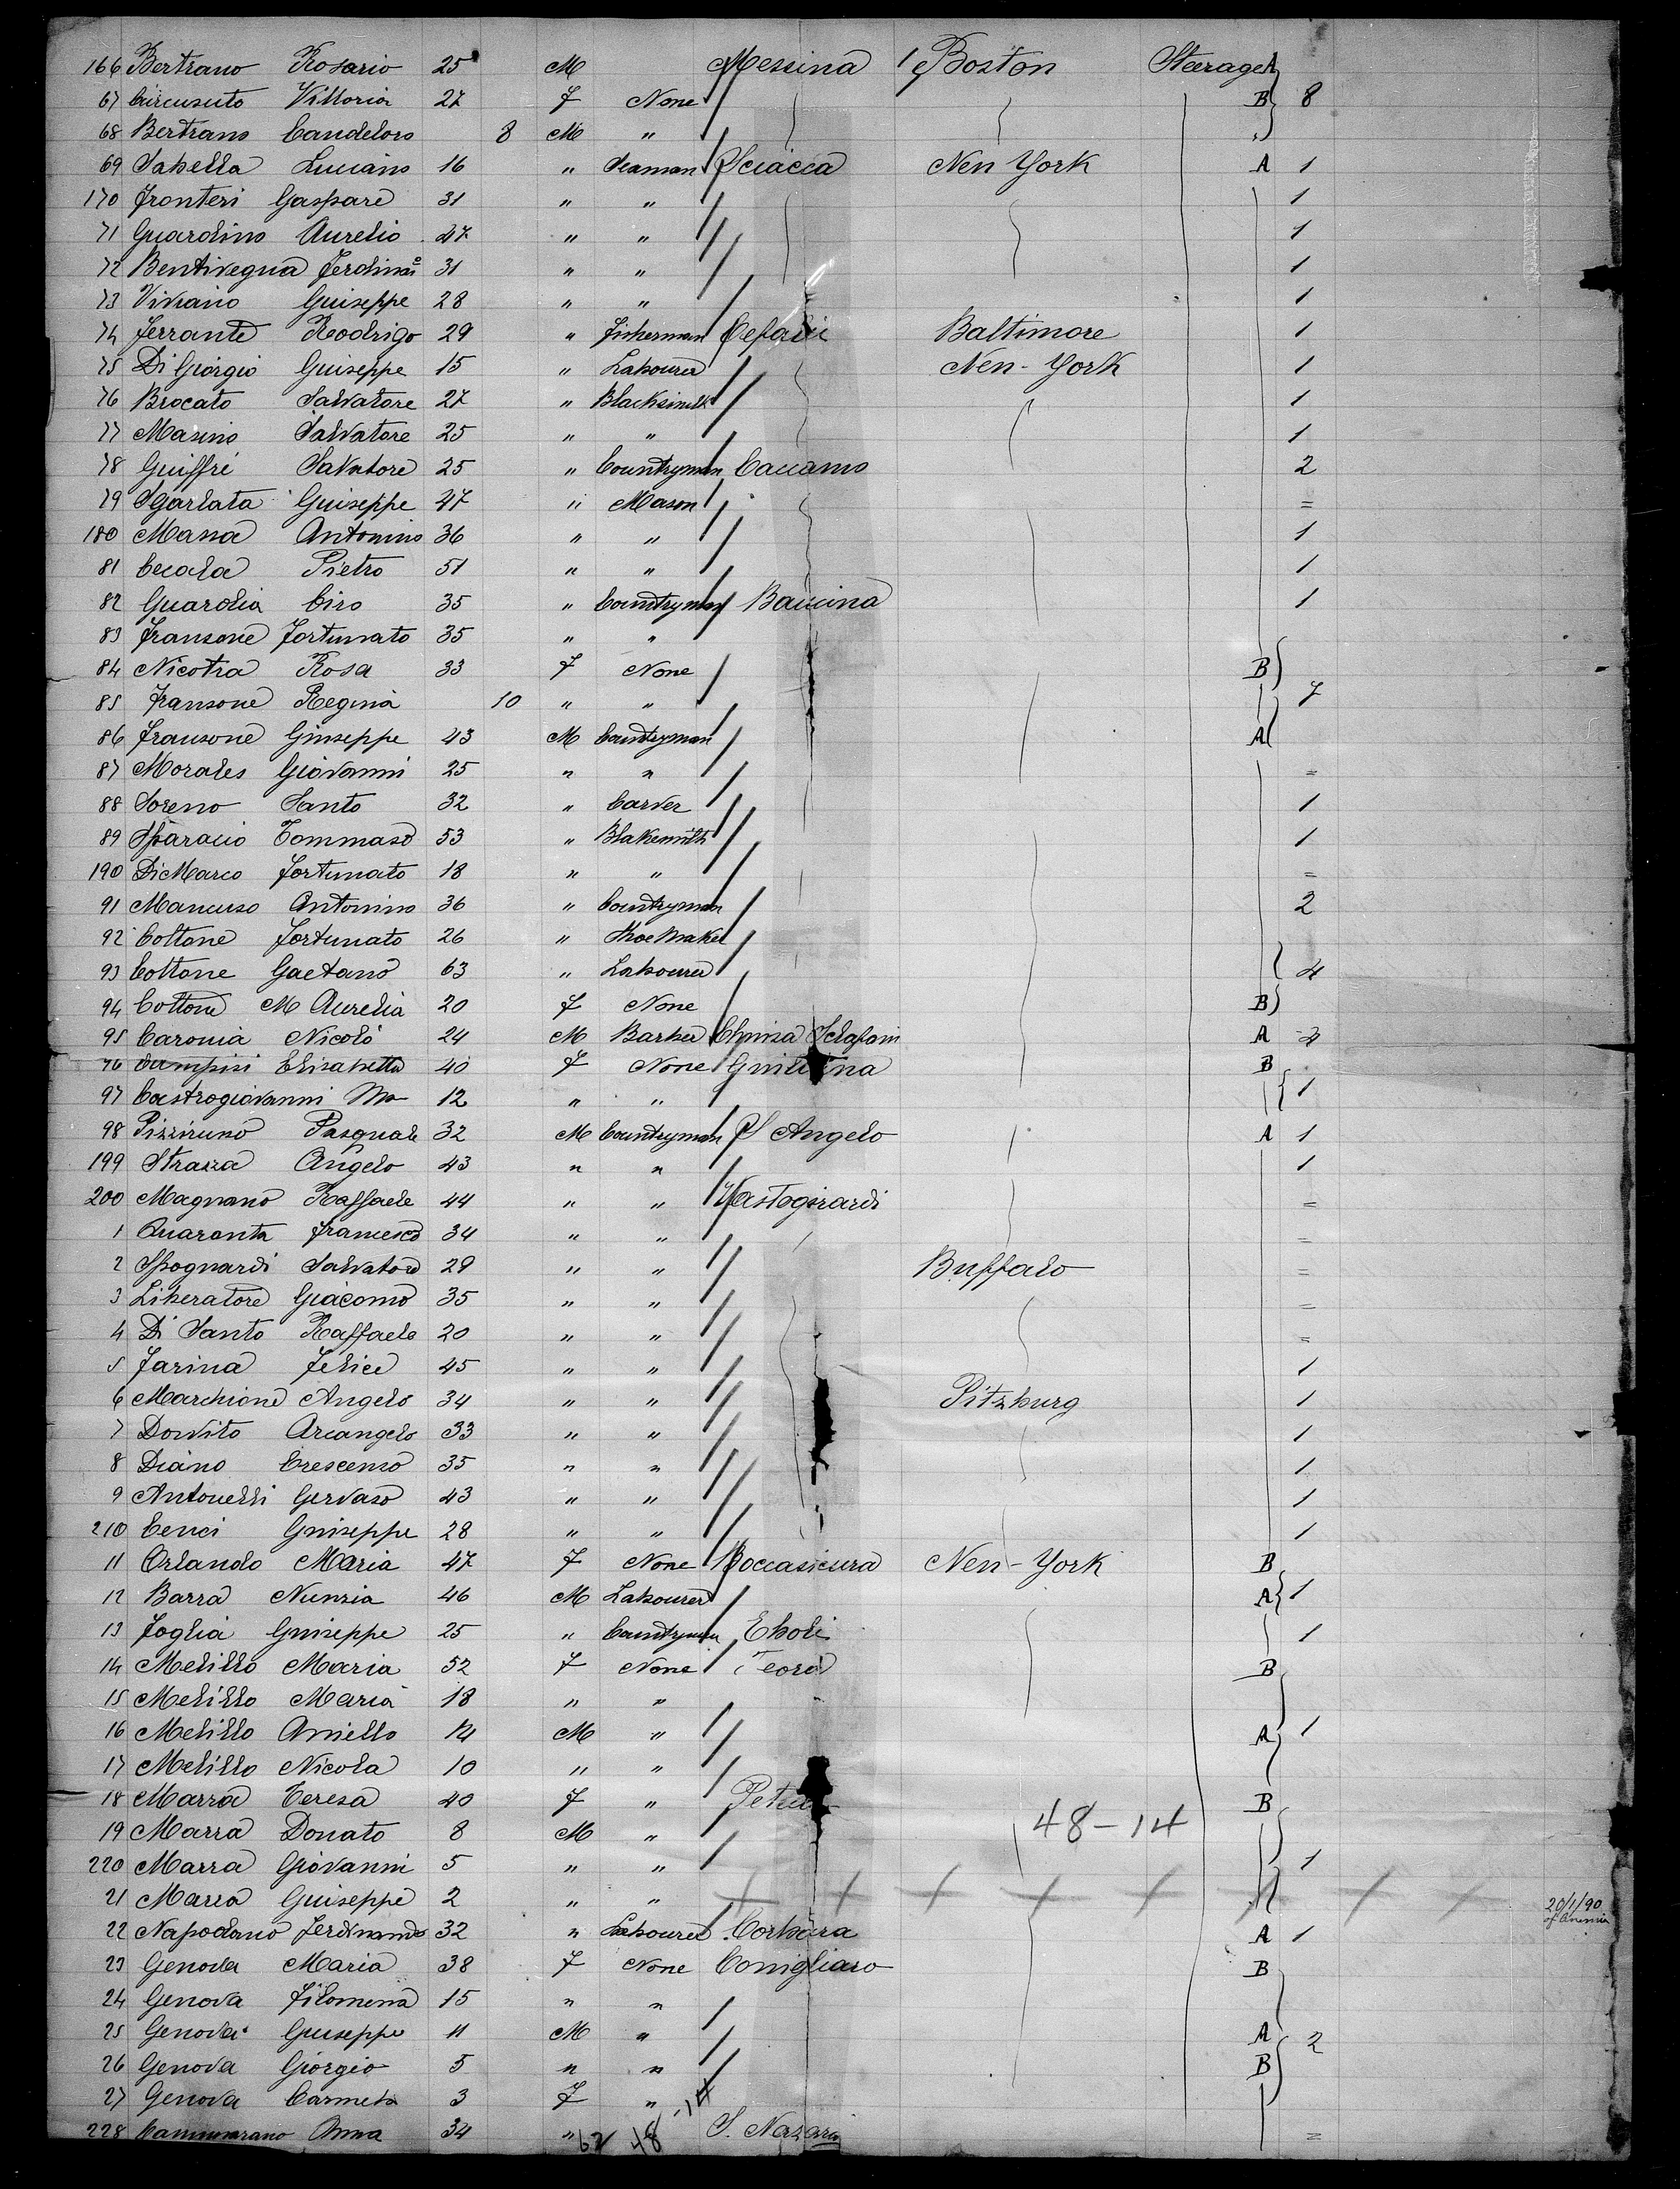 166 Bertrano Rosario 25 M Messina Boston Steerage A
67 Vittoria 27 F None B 8
68 Bertrano Candeloro 8 M " "
69 Sabella Luciano 16 " Seaman Sciacca New York A 1
170 Fronteri Gaspare 31 " " 1
71 Guardino Aurelio 47 " " 1
72 Bentivegna Ferdin 31 " " 1
73 Viviano Guiseppe 28 " " 1
74 Ferrante Reodrigo 29 " Fisherman Baltimore 1
75 Di Giorgio Guiseppe 15 " Labourer New-York 1
76 Brocato Salvatore 27 " 1
77 Masino Salvatore 25 " " 1
78 Guiffré Salvatore 25 " Countryman Caccamo 2
79 Sgarlata Guiseppe 47 " Mason =
180 Massa Antonino 36 " " 1
81 Cecala Pietro 51 " " 1
82 Guardia Ciro 35 " Countryman Baucina 1
83 Fransone Fortunato 35 " "
84 Nicotra Rosa 33 F None B
85 Fransone Regina 10 " " 7
86 Fransone Giuseppe 43 M Countryman A
87 Morales Giovanni 25 " " =
88 Soreno Santo 32 " Carver 1
89 Sparacio Tommaso 53 " Blakesmith 1
190 Di Marco Fortunato 18 " " =
91 Mancuso Antonino 36 " Countryman 2
92 Cottone Fortunato 26 " Shoe Maker
93 Cottone Gaetano 63 " Labourer 4
94 Cottone M Aurelia 20 F None B
95 Caronia Nicolò 24 M Barber Chiusa Sclafani A 4
96 Elisabetta 40 F None B
97 Castrogiovanni Ma 12 " " 1
98 Pasquale 32 M Countryman S Angelo A 1
199 Strazza Angelo 43 " " 1
200 Magnano Raffaele 44 " " Vastogirardi =
1 Quaranta Francesco 34 " " =
2 Spognardi Salvatore 29 " " Buffalo =
3 Liberatore Giacomo 35 " " =
4 Di Santo Raffaele 20 " " =
5 Farina Felice 45 " " 1
6 Marchione Angelo 34 " " Pitzburg 1
7 Donvito Arcangelo 33 " " 1
8 Diano Crescenzo 35 " " 1
9 Antonelli Gervaso 43 " " 1
210 Cenci Guiseppe 28 " " 1
11 Orlando Maria 47 F None Roccasicura New-York B
12 Barra Nunzia 46 M Labourer A 1
13 Foglia Guiseppe 25 " Countryman Eboli 1
14 Melillo Maria 52 F None Teora B
15 Melillo Maria 18 " "
16 Melillo Aniello 12 M " A 1
17 Melillo Nicola 10 " "
18 Marra Teresa 40 F " B
19 Marra Donato 8 M " 48-14
220 Marra Giovanni 5 " " 1
21 Marra Guiseppe 2 " " + + + + + + + + 20/1/90
22 Napodano Ferdinando 32 " Labourer Corbara A 1
23 Genova Maria 38 F None Conigliaro B
24 Genova Filomena 15 " "
25 Genova Guseppe 11 M " A 2
26 Genova Giorgio 5 " " B
27 Genova Carmela 3 F "
228 Cammarano Anna 34 " 62 48-14 S. Nazario =